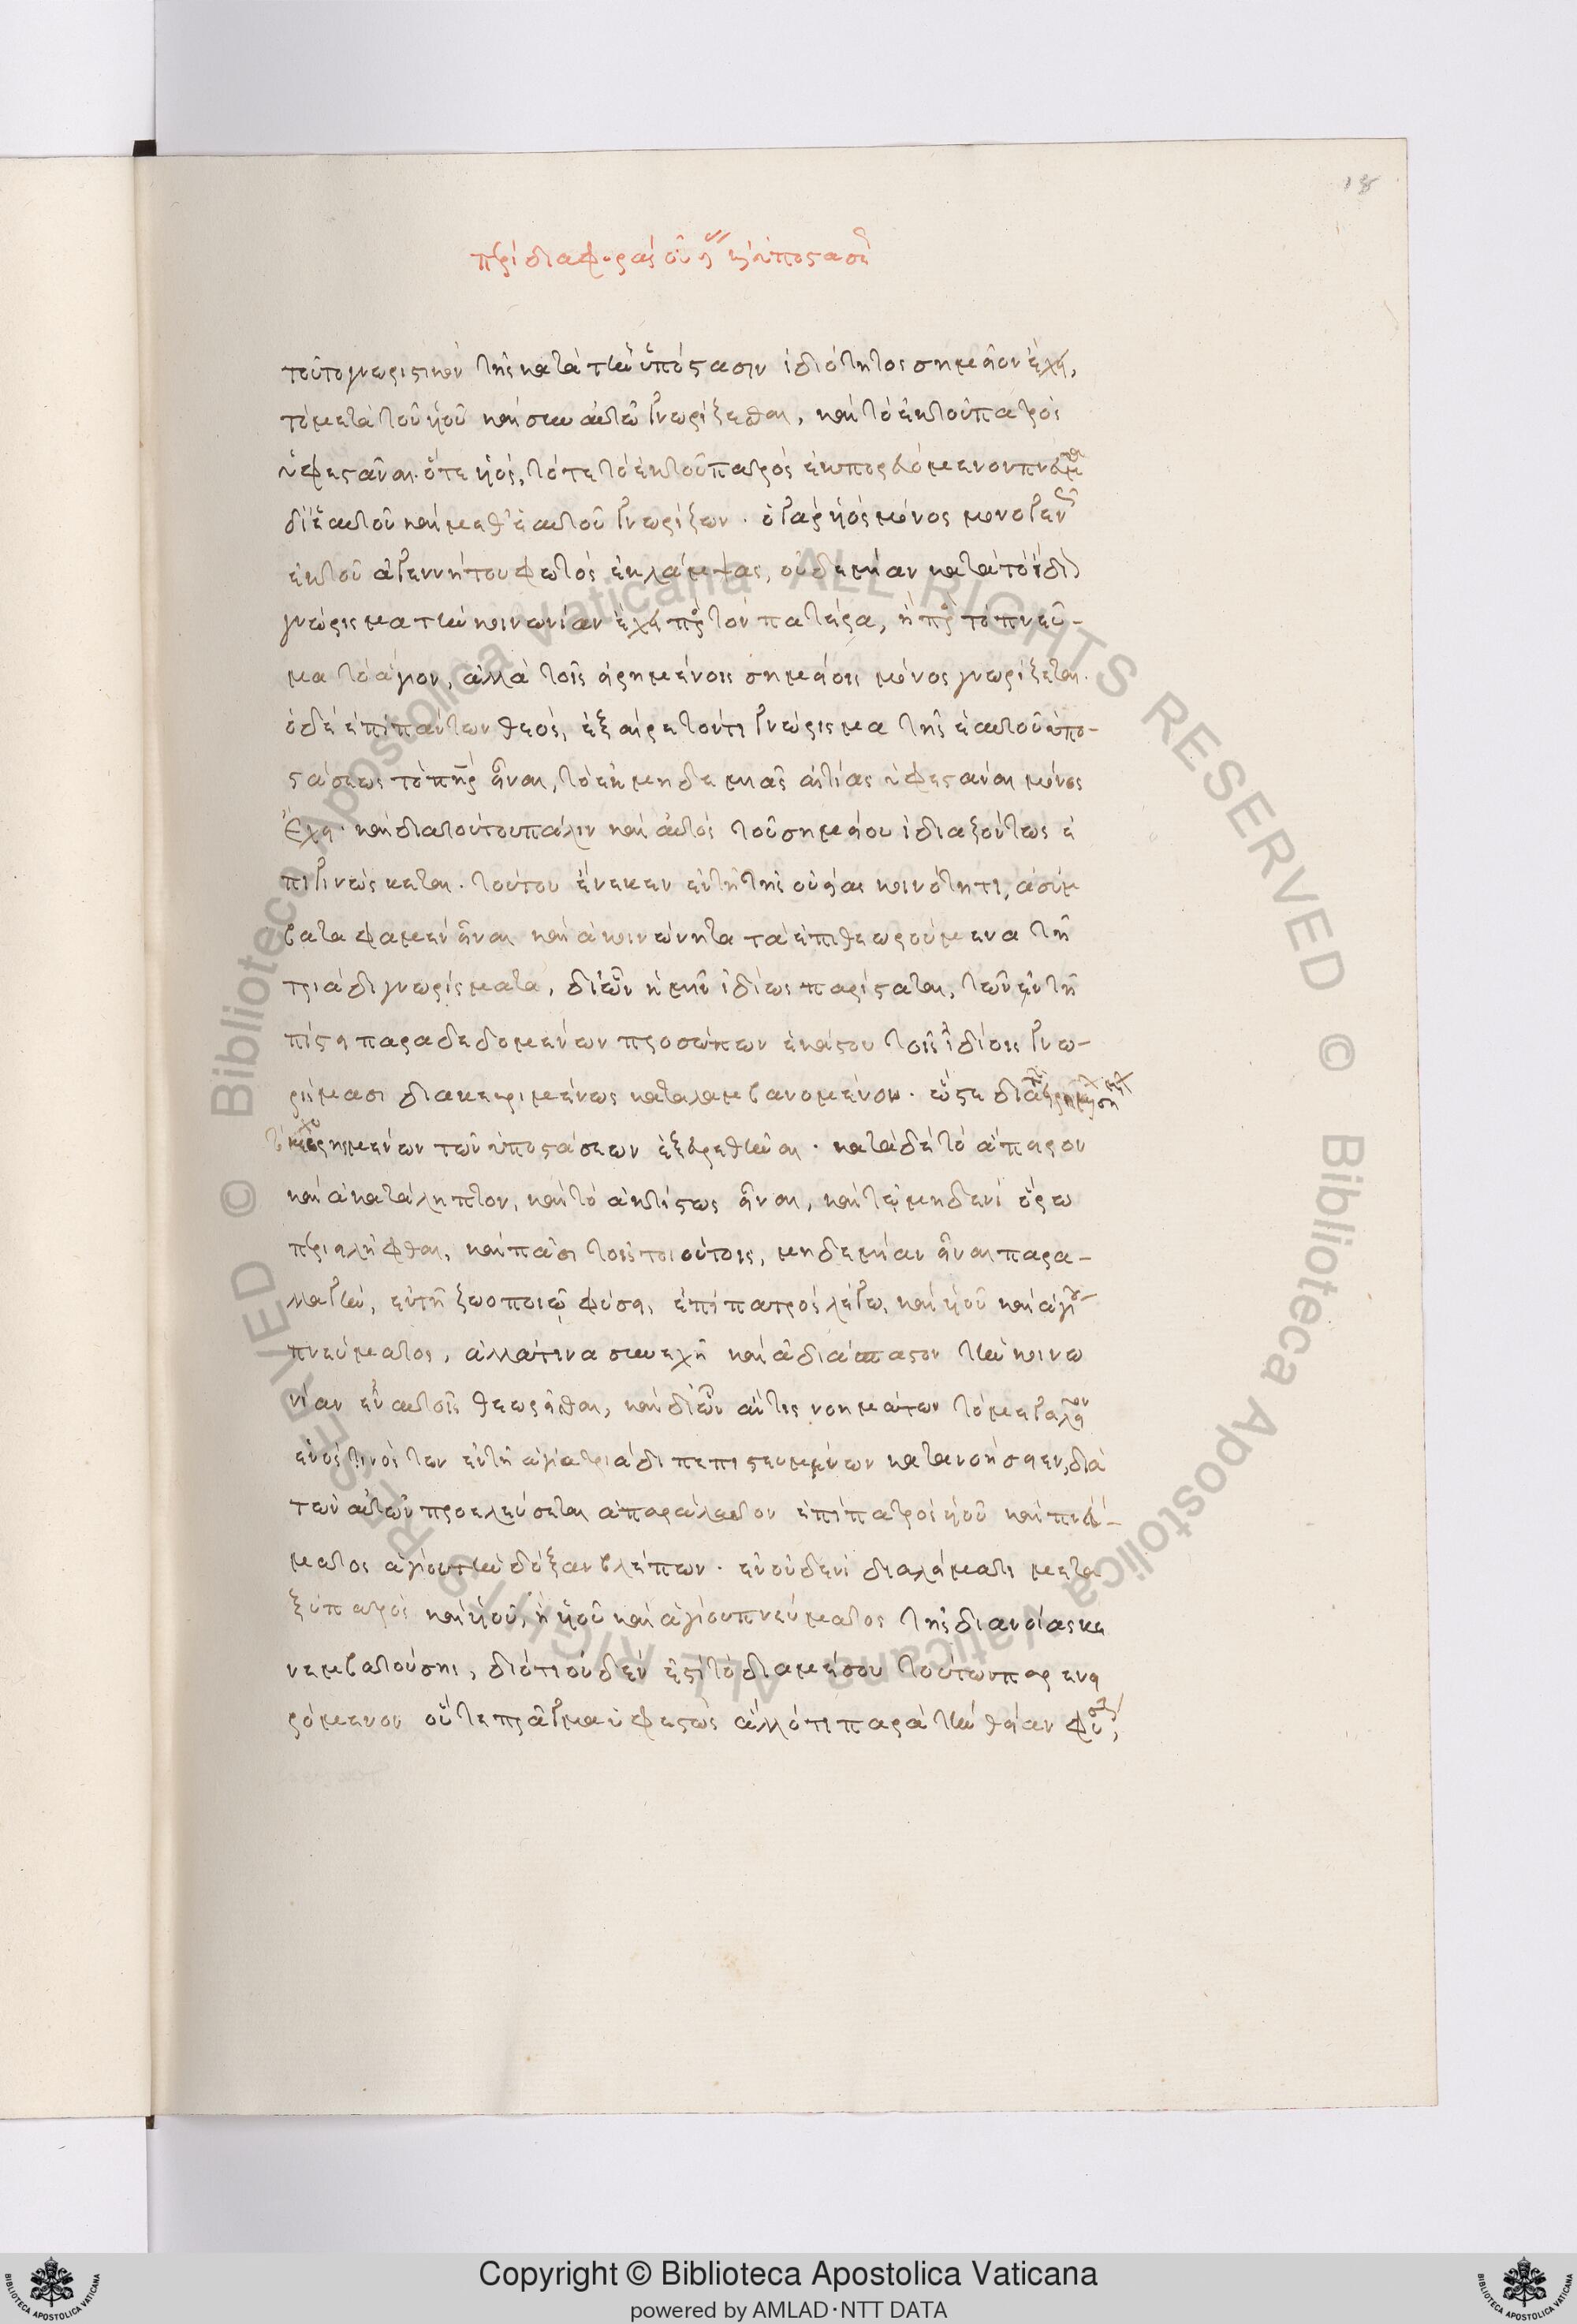 18
περὶ διαφορᾶς οὐσί(ας) κ(αὶ) ὑποστάσε(ως)
τοῦτο γνωριστικὸν τῆς κατὰ τὴν ὑπόστασιν ἰδιότητος σημεῖον ἔχει,
τὸ μετὰ τοῦ υἱοῦ καὶ σὺν αὐτῶ γνωρίζεσθαι, καὶ τὸ ἐκ τοῦ πατρὸς
ὑφεστᾶναι. ὅτε υἱὸς, τότε τὸ ἐκ τοῦ πατρὸς ἐκπορευόμενον πνεῦμα
δι' ἑαυτοῦ καὶ μεθ' ἑαυτοῦ γνωρίζων. ὁ γὰρ υἱὸς μόνος μονογενῶς
ἐκ τοῦ ἀγεννήτου φωτὸς ἐκλάμψας, οὐδεμίαν κατὰ τὸ ἴδι
γνώρισμα τὴν κοινωνίαν ἔχει πρὸς τὸν πατέρα, ἢ πρὸς τὸ πνεῦ-
μα τὸ ἅγιον, ἀλλὰ τοῖς εἰρημένοις σημείοις μόνος γνωρίζεται.
ὁ δὲ ἐπὶ πάντων θεὸς, ἐξαίρετόν τι γνώρισμα τῆς ἑαυτοῦ ὑπο-
στάσεως τὸ πὴρ εἶναι, τὸ ἐκ μηδεμιᾶς αἰτίας ὑφεστάναι μόνος
ἔχει. καὶ διὰ τούτου πάλιν καὶ αὐτὸς τοῦ σημείου ἰδιαζόντως ἐ
πιγινώσκεται. τούτου ἕνεκεν ἐν τῆ τῆς οὐσίας κοινότητι, ἀσύμ
βατα φαμὲν εἶναι καὶ ἀκοινώνητα τὰ ἐπιθεωρούμενα τῆ
τριάδι γνωρίσματα, δι' ὧν ἡ μὲν ἰδίως παρίσταται, τῶν ἐν τῆ
πίστει παραδεδομένων προσώπων ἑκάστου τοῖς ἰδίοις γνω-
ρίσμασι διακεκριμένως καταλαμβανομένου. ὥστε διὰ
κεχωρισμένων τῶν ὑποστάσεων ἐξευρεθῆναι. κατὰ δὲ τὸ ἄπειρον
καὶ ἀκατάληπτον, καὶ τὸ ἀκτίστως εἶναι, καὶ τὸ μηδενὶ ὅρω
περιειλήφθαι, καὶ πᾶσι τοῖς τοιούτοις, μηδεμίαν εἶναι παρα-
λλαγὴν, ἐν τῆ ζωοποιῶ φύσει, ἐπὶ πατρὸς λέγω, καὶ υἱοῦ καὶ ἁγίου
πνεύματος, ἀλλά τινα συνεχῆ καὶ ἀδιάσπαστον τὴν κοινω
νίαν ἐν αὐτοῖς θεωρεῖσθαι, καὶ δι' ὧν ἄν τις νοημάτων τὸ μεγαλεῖον
ἑνός τινος των ἐν τῆ ἁγία τριάδι πεπιστευμένων κατανοήσειεν, διὰ
τῶν αὐτῶν προελεύσεται ἀπαράλλακτον ἐπὶ πατρὸς υἱοῦ καὶ πνεύ-
ματος ἁγίου τὴν δόξαν βλέπων. ἐν οὐδενὶ διαλείμματι μετα
ξὺ πατρὸς καὶ υἱοῦ, ἢ υἱοῦ καὶ ἁγίου πνεύματος τῆς διανοίας κε
νεμβατούσης, διότι οὐδέν ἐστι τὸ διὰ μέσου τούτων παρενει
ρόμενον οὔτε πρᾶγμα ὑφεστὼς ἄλλό τι παρὰ τὴν θείαν φύσιν,